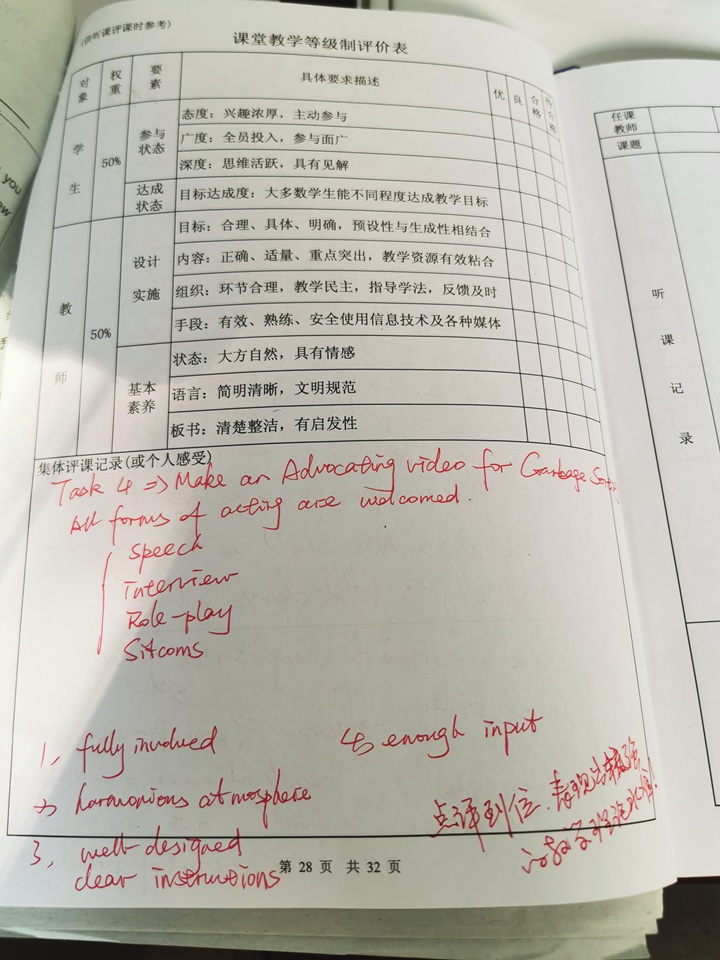 (供听课评课时参考)
课堂教学等级制评价表
对象 权重 要素 具体要求描述 优 良 合格 不合格
学生 50% 参与状态 态度：兴趣浓厚，主动参与
广度：全员投入，参与面广
深度：思维活跃，具有见解
达成状态 目标达成度：大多数学生能不同程度达成教学目标
教师 50% 设计实施 目标：合理、具体、明确，预设性与生成性相结合
内容：正确、适量、重点突出，教学资源有效粘合
组织：环节合理，教学民主，指导学法，反馈及时
手段：有效、熟练、安全使用信息技术及各种媒体
基本素养 状态：大方自然，具有情感
语言：简明清晰，文明规范
板书：清楚整洁，有启发性
集体评课记录(或个人感受)
Task 4 => Make an Advocating video for Garbage
All forms of acting are welcomed.
Speech
Interview
Role-play
Sitcoms
1, fully involved
4, enough input
2, harmonious atmosphere
3, well designed
clear instructions
点评到位、表现出较强
第 28 页 共 32 页
任课教师
课题
听课记录
you